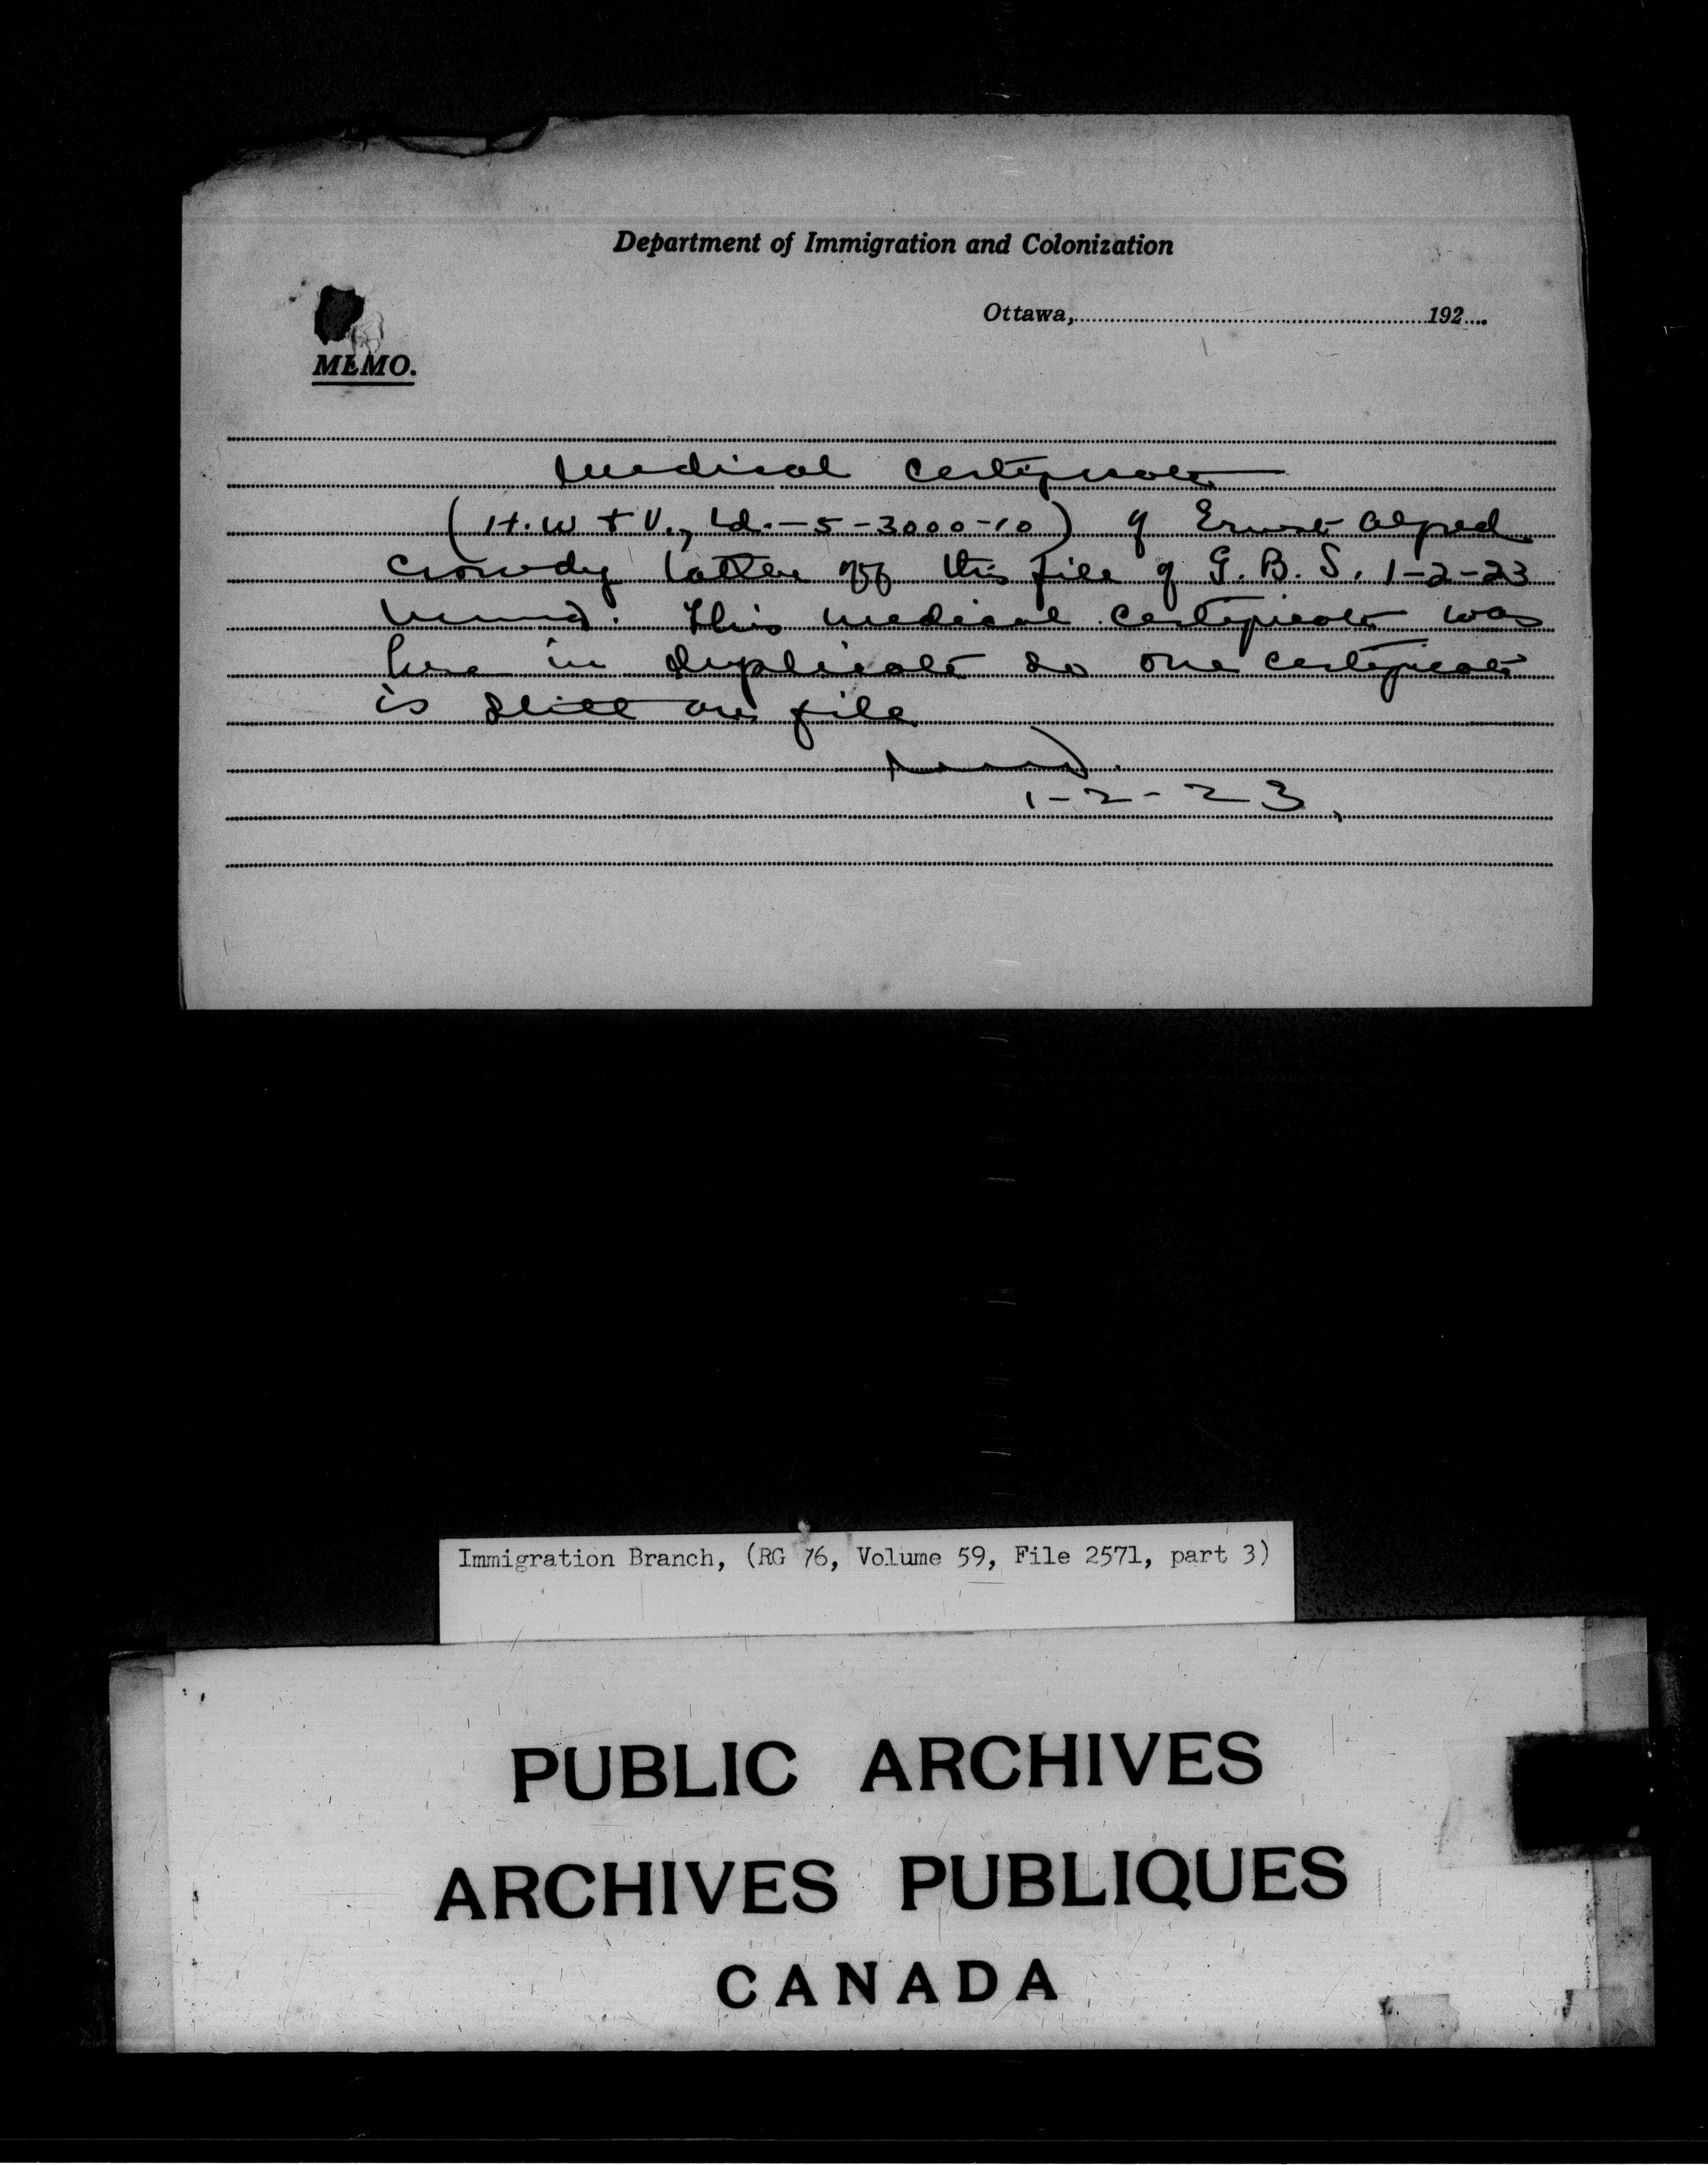 Department of Immigration and Colonization
Ottawa, 192
MEMO.
Medical Certificate
(H. W & V., Ld. - 5 - 3000-10) of Ernest Alfred
Crowdy taken off this file of G. B. S. 1-2-23
This medical certificate was
here in duplicate so one certificate
is still on file
1-2-23.
Immigration Branch, (RG 76, Volume 59, File 2571, part 3)
PUBLIC ARCHIVES
ARCHIVES PUBLIQUES
CANADA